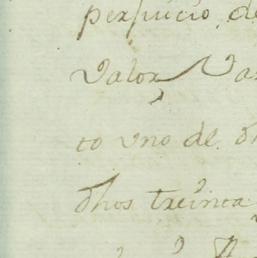 perjuicio de
valor
to uno de
dhos treinta